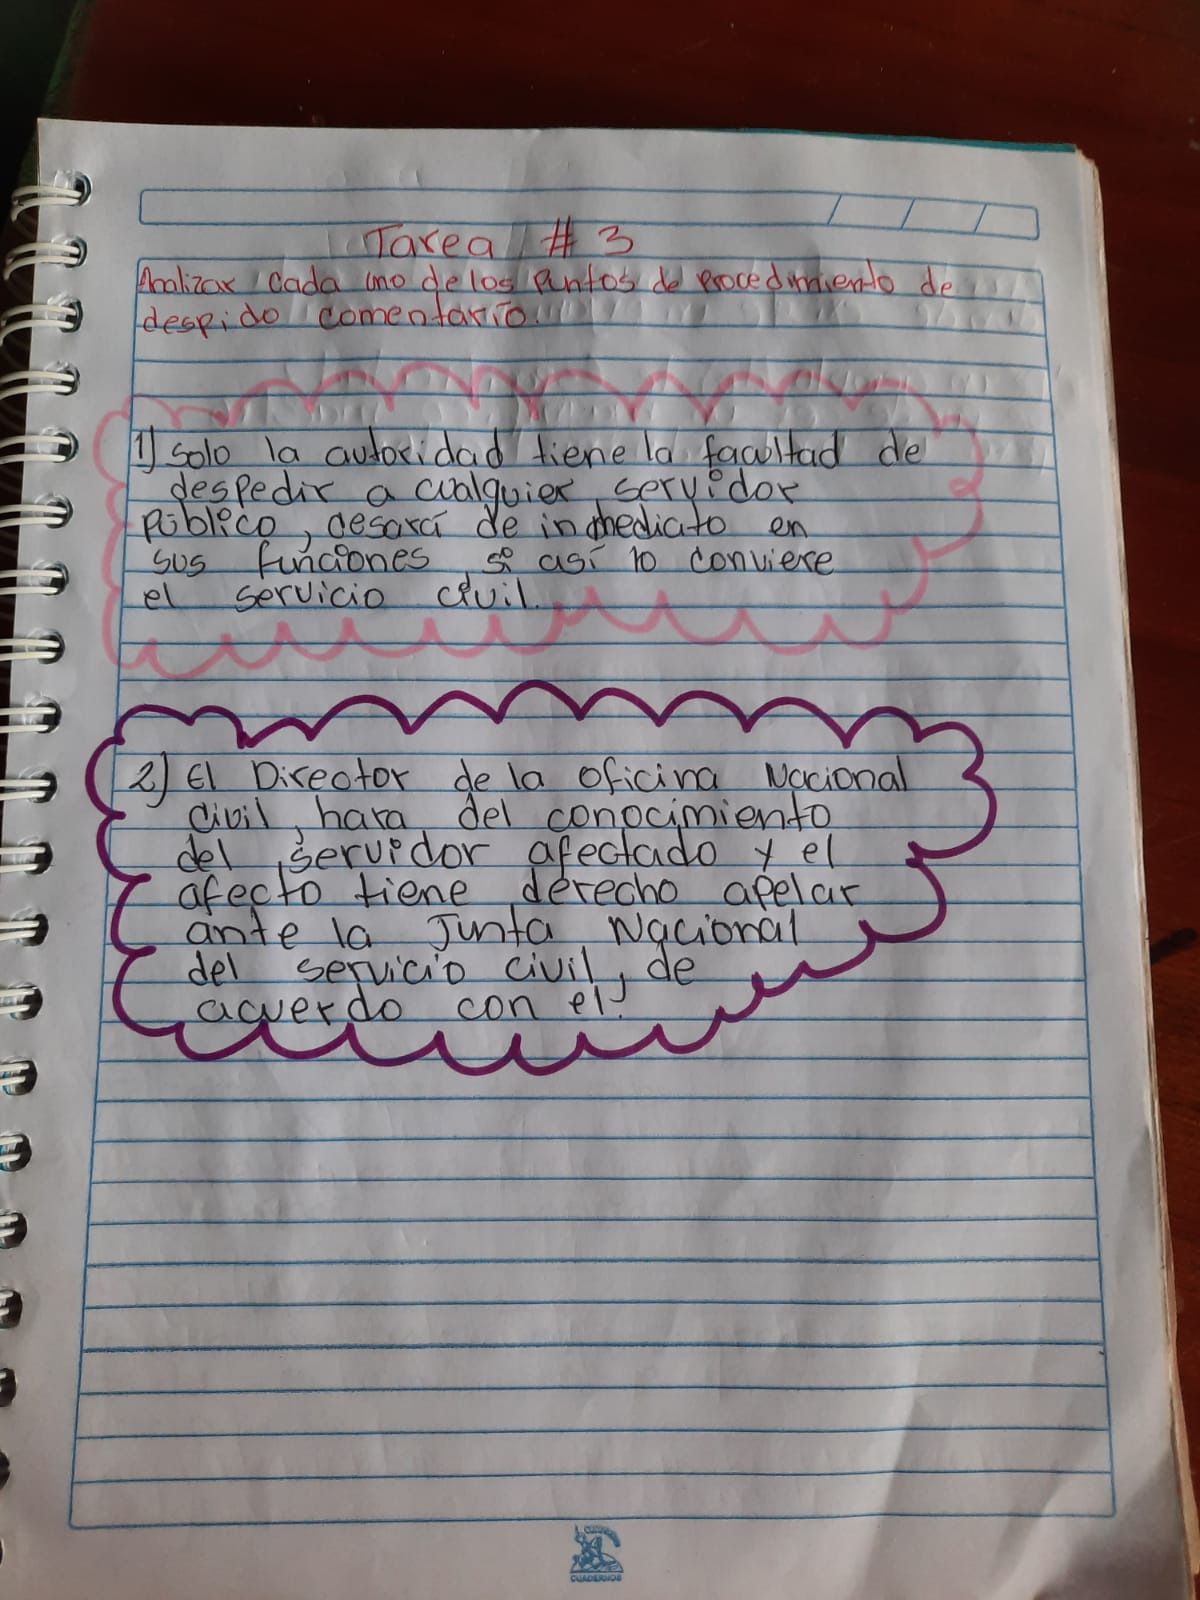 Tarea # 3
Analizar cada uno de los puntos de procedimiento de
despido comentario.
1) Solo la autoridad tiene la facultad de
despedir a cualquier servidor
público, cesará de inmediato en
sus funciones, si así lo conviere
el servicio civil.
2) El Director de la oficina Nacional
civil, hara del conocimiento
del servidor afectado y el
afecto tiene derecho apelar
ante la Junta Nacional
del servicio civil, de
acuerdo con el.
CUADERNOS